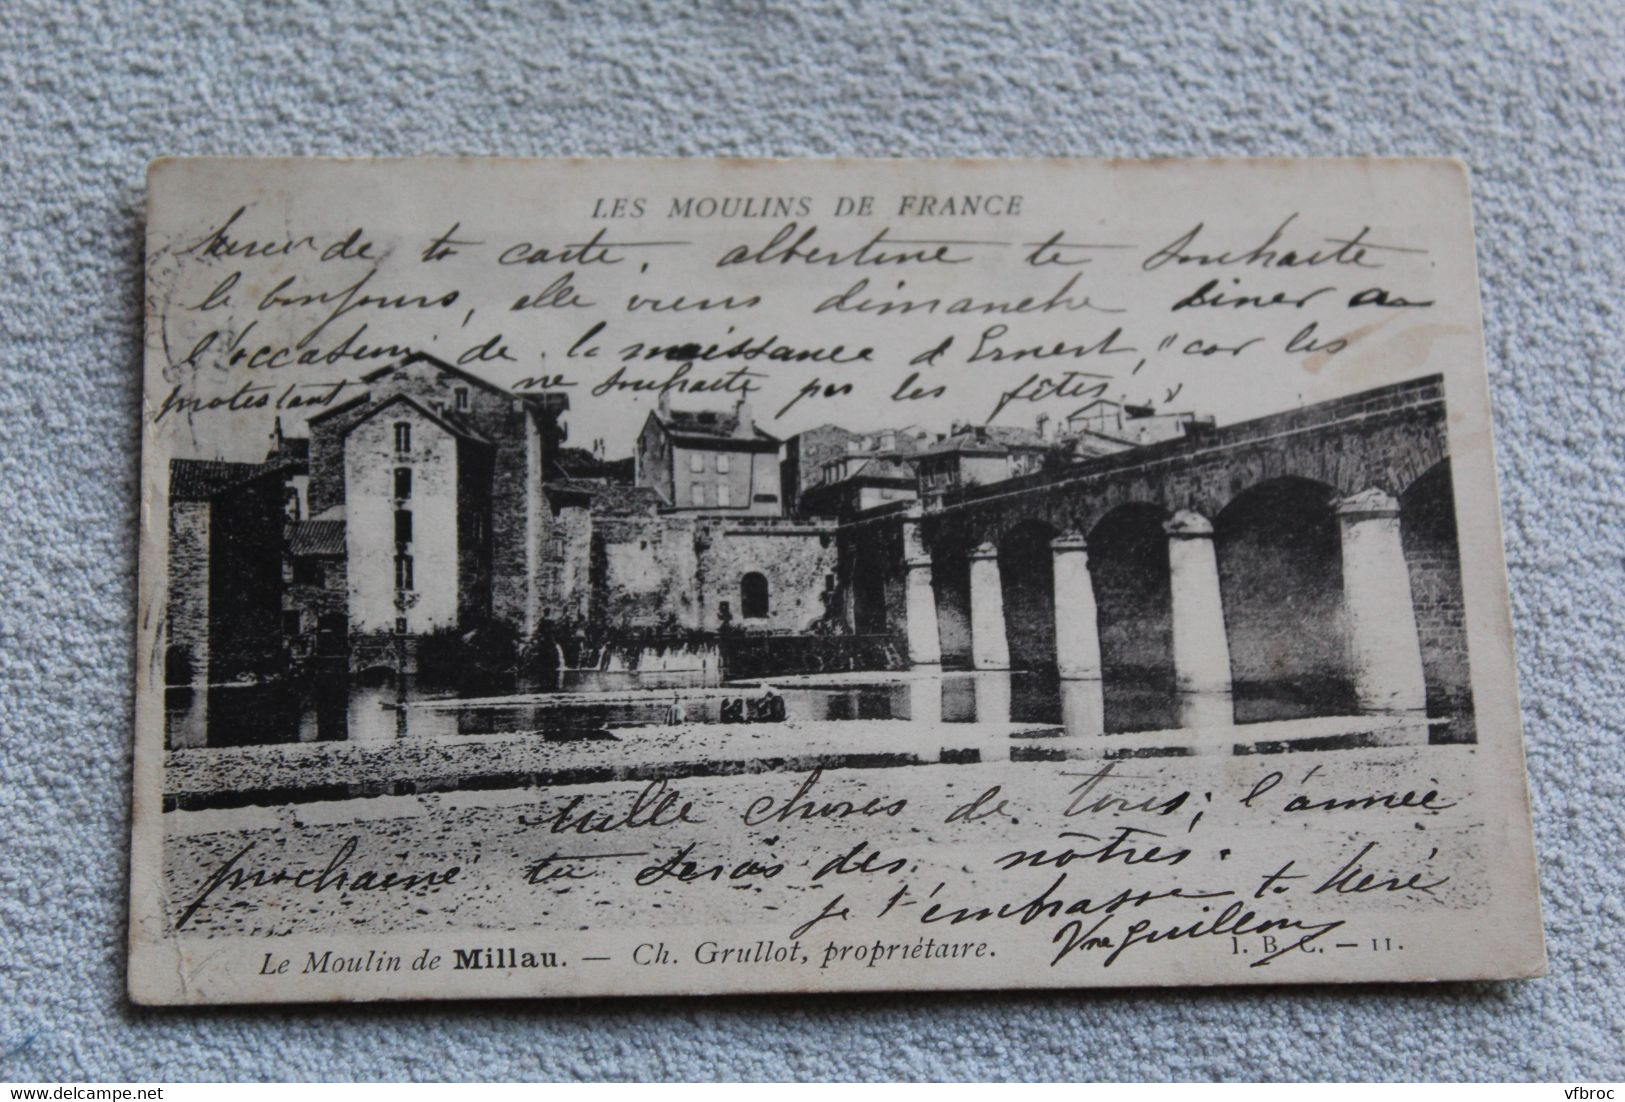 LES MOULINS DE FRANCE
de ta carte, albertine te souhaite
le bonjours, elle viens dimanche diner a
l'occasion de la naissance d'Ernest, "car les
protestant ne souhaite pas les fêtes"
mille choses de tous; l'année
prochaine tu seras des nôtres.
je t'embrasse ta
Vve Guillon
Le Moulin de Millau. — Ch. Grullot, propriétaire. I. B. C. — 11.
delcampe.net
vfbroc